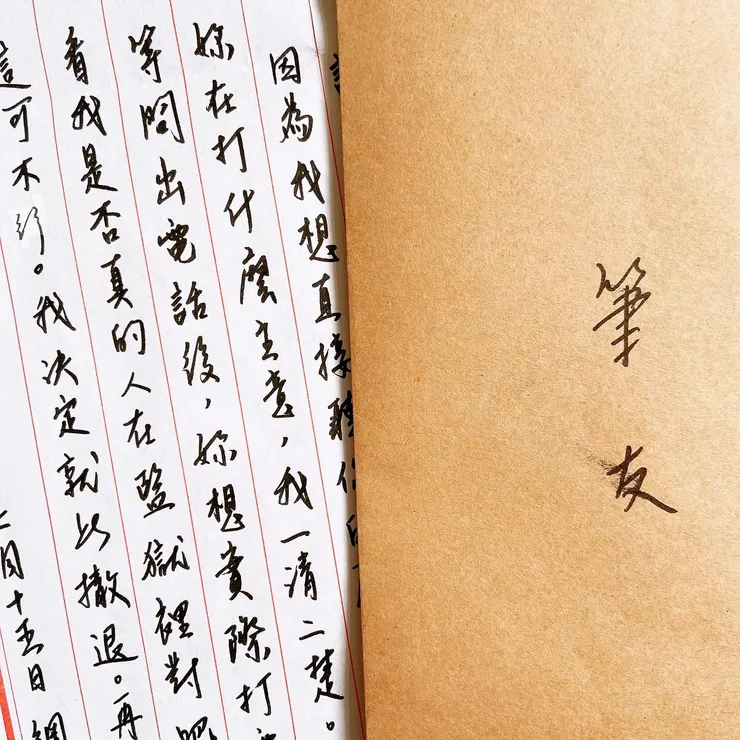 筆
友
因為我想直接聽你的
妳在打什麼主意，我一清二楚。
等問出電話後，妳想實際打
看我是否真的人在監獄裡對吧
這可不行。我決定就此撤退。再
月十五日